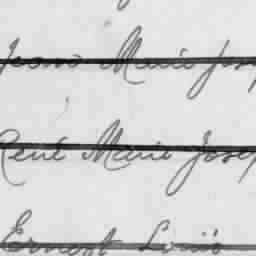 Jeanne Marie Jose
René Marie Josep
Ernest Louis